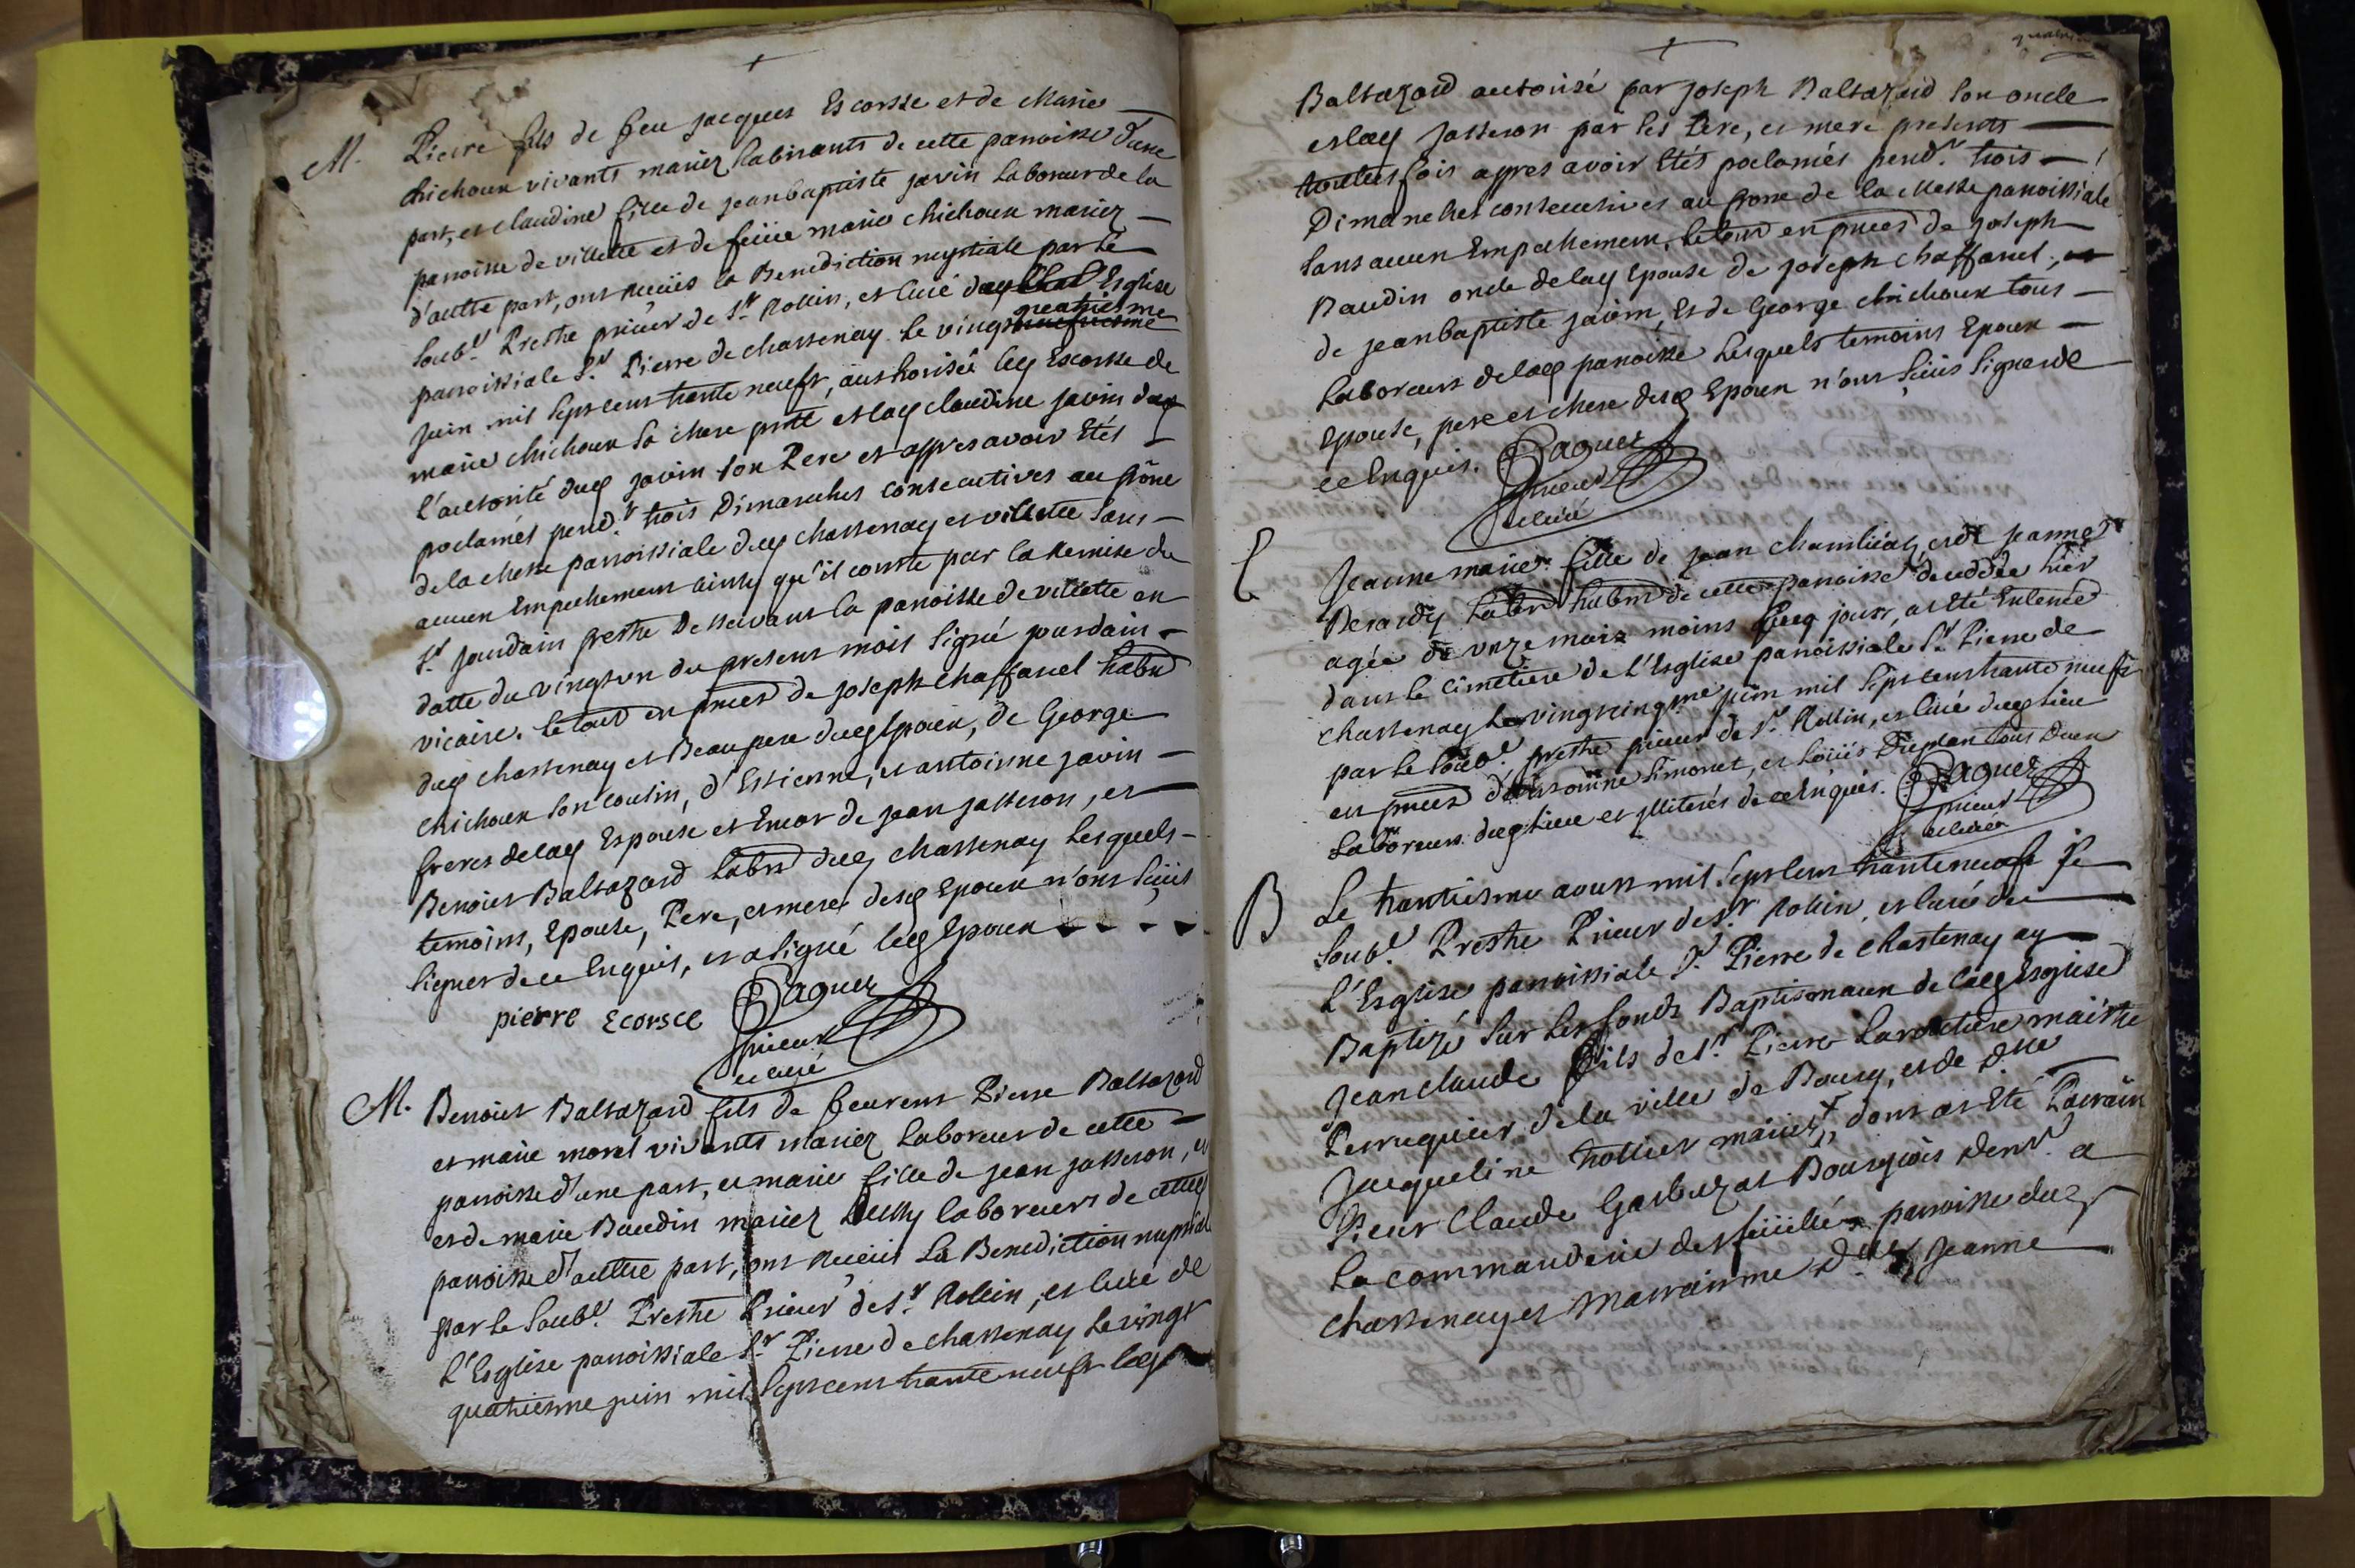 M. Pierre fils de feu jacques Escorsse et de Marie
chichoux vivants mariez habitants de cette parroisse d'une
part, et claudine fille de jeanbaptiste javin laboreur de la
parroisse de villette et de feüe marie chichoux mariez
d'autre part, ont receüs la Benediction nuptiale par le
soub.é Prestre prieur de S.t Rollin, et Curé Esglise
parroissiale S.t Pierre de chastenay le vingt quatriesme
juin mil sept cent trante neufs, authorisés led Escorsse de
marie chichoux sa mere et lad claudine javin de
l'autorité dud javin son Pere et appres avoir Etés
proclamés pend.t trois Dimanches consecutives au prône
de la Messe parroissiale dud chastenay et villette sans
aucun Empechement ainsy qu'il conste par la Remise du
S.r jourdain prestre Desservant la parroisse de villette en
datte du vingt un du present mois signé jourdain
vicaire. le tout en pnces de joseph chaffanel
dud chastenay et Beaupere dud Epoux, de George
chichoux son cousin, d'Estienne, et antoinne javin
freres de lad Espouse et Encor de jean jasseron, et
Benoist Baltazard dud chastenay lesquels
temoins, Epouse, Pere, et mere desd Epoux n'ont sçüs
signer de ce Enquis, et a signé led Epoux
pierre Ecorsce Paquet
prieur
et curé
M. Benoist Baltazard fils de Pierre Baltazard
et marie morel vivants mariez laboreur de cette
parroisse d'une part, et marie fille de jean jasseron, et
et de marie Baudin mariez laboreurs de cette
parroisse d'autre part, ont receüs La Benediction nuptiale
par le soub.é Prestre Prieur de S.t Rollin, et Curé de
L'Esglise parroissiale S.t Pierre de chastenay le vingt
quatriesme juin mil sept cent trante neufs led
Baltazard autorisé par joseph Baltazard son oncle
et lad jasseron par ses Pere, et mere presents
toutes fois appres avoir Etés proclamés pend.t trois
Dimanches consecutives au prone de la Messe parroissiale
sans aucun Empechement. le tout en pnces de joseph
Baudin oncle de lad Epouse de joseph chaffanel, et
de jeanbaptiste javin, Et de George chichoux tous
laboreurs de lad parroisse lesquels temoins Epoux
Epouse, pere et Mere desd Epoux n'ont sçüs signer de
ce Enquis. Paquet
prieur
et curé
Jeanne marie fille de jean et de jeanne
de cette parroisse decedée hier
agée de unze mois moins jours, at Eté Enterré
dans le Cimetiere de L'Esglise parroissiale S.t Pierre de
chastenay le vingt cinq.me juin mil sept cent trante neufs
par le soub.é prestre prieur de S.t Rollin, et Curé dud lieu
en pnces simonet, et tous deux
laboreurs dud lieu et illiterés de ce Enquis. Paquet
prieur
et curé
B Le trantiesme aoust mil sept cent trante neufs Je
soub.é Prestre Prieur de S.t Rollin, et Curé de
L'Esglise parroissiale S.t Pierre de chastenay ay
Baptizé sur les fonds Baptismaux de lad Esglise
jean claude fils de S.r Pierre maistre
Perruquier de la ville de Bourg, et de D.lle
jacqueline mariez, dont at Eté Parrain
sieur Claude Bourgeois dem.t a
La commanderie des feüillées parroisse dud
chastenay et Marrainne D.lle Jeanne